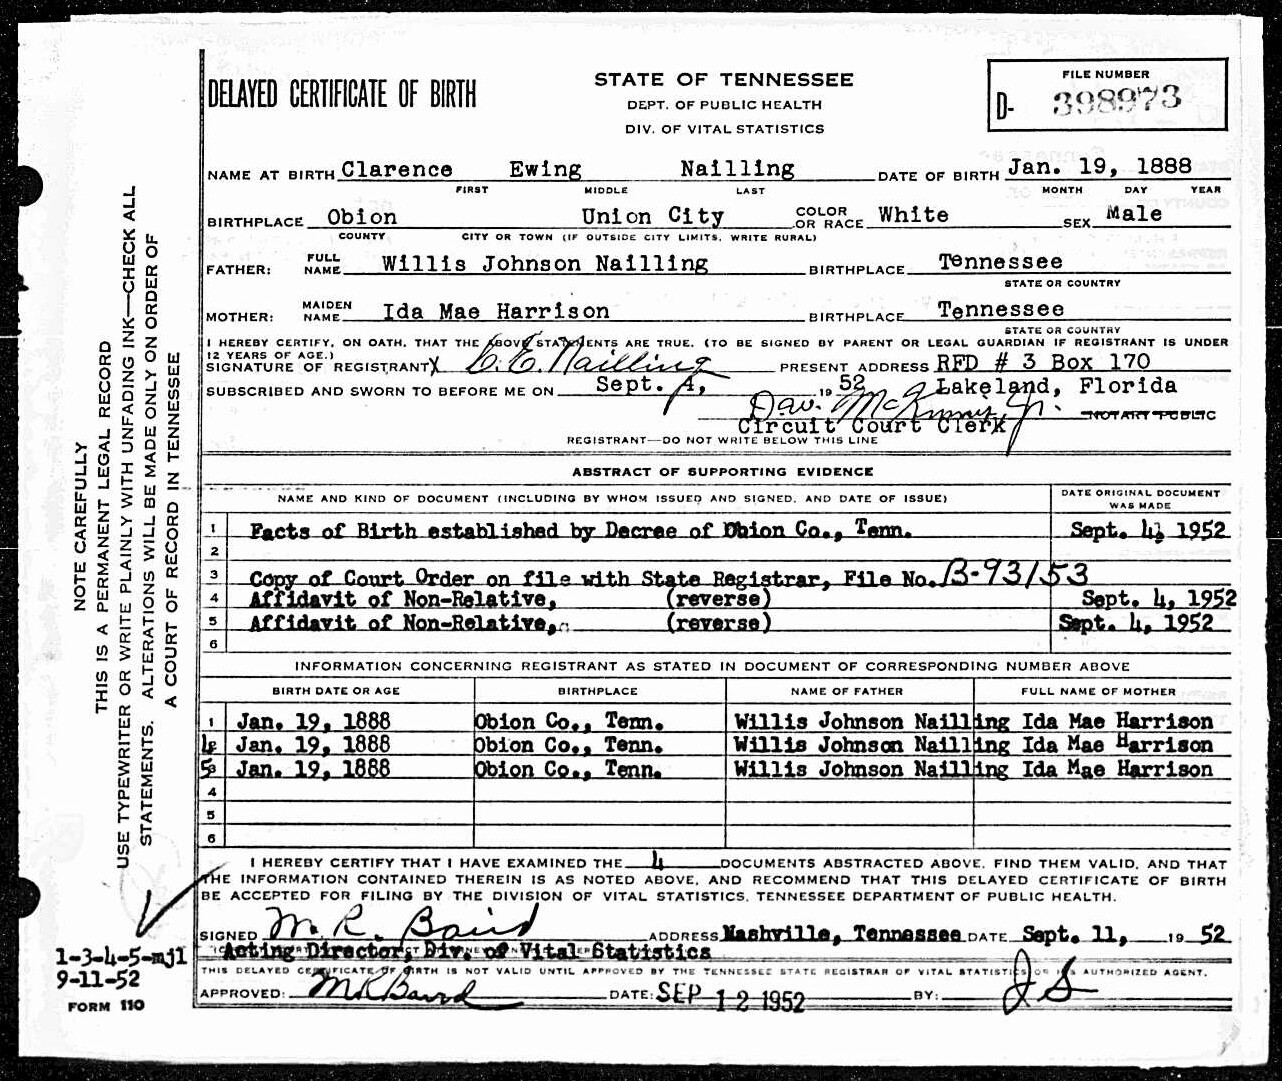 DELAYED CERTIFICATE OF BIRTH
STATE OF TENNESSEE
DEPT. OF PUBLIC HEALTH
DIV. OF VITAL STATISTICS
FILE NUMBER
D- 398973
NAME AT BIRTH Clarence Ewing Nailling DATE OF BIRTH Jan. 19, 1888
FIRST MIDDLE LAST MONTH DAY YEAR
BIRTHPLACE Obion Union City COLOR OR RACE White SEX Male
COUNTY CITY OR TOWN (IF OUTSIDE CITY LIMITS, WRITE RURAL)
FATHER: FULL NAME Willis Johnson Nailling BIRTHPLACE Tennessee
STATE OR COUNTRY
MOTHER: MAIDEN NAME Ida Mae Harrison BIRTHPLACE Tennessee
STATE OR COUNTRY
I HEREBY CERTIFY, ON OATH, THAT THE ABOVE STATEMENTS ARE TRUE. (TO BE SIGNED BY PARENT OR LEGAL GUARDIAN IF REGISTRANT IS UNDER
12 YEARS OF AGE.)
SIGNATURE OF REGISTRANT X C. E. Nailling PRESENT ADDRESS RFD # 3 Box 170
SUBSCRIBED AND SWORN TO BEFORE ME ON Sept. 4, 19 52 Lakeland, Florida
Dav. McKinnis, Jr. NOTARY PUBLIC
Circuit Court Clerk
REGISTRANT—DO NOT WRITE BELOW THIS LINE
ABSTRACT OF SUPPORTING EVIDENCE
NAME AND KIND OF DOCUMENT (INCLUDING BY WHOM ISSUED AND SIGNED, AND DATE OF ISSUE) DATE ORIGINAL DOCUMENT WAS MADE
1 Facts of Birth established by Decree of Obion Co., Tenn. Sept. 4, 1952
2
3 Copy of Court Order on file with State Registrar, File No. B-93153
4 Affidavit of Non-Relative, (reverse) Sept. 4, 1952
5 Affidavit of Non-Relative, (reverse) Sept. 4, 1952
6
INFORMATION CONCERNING REGISTRANT AS STATED IN DOCUMENT OF CORRESPONDING NUMBER ABOVE
BIRTH DATE OR AGE BIRTHPLACE NAME OF FATHER FULL NAME OF MOTHER
1 Jan. 19, 1888 Obion Co., Tenn. Willis Johnson Nailling Ida Mae Harrison
4 Jan. 19, 1888 Obion Co., Tenn. Willis Johnson Nailling Ida Mae Harrison
5 Jan. 19, 1888 Obion Co., Tenn. Willis Johnson Nailling Ida Mae Harrison
4
5
6
I HEREBY CERTIFY THAT I HAVE EXAMINED THE 4 DOCUMENTS ABSTRACTED ABOVE, FIND THEM VALID, AND THAT
THE INFORMATION CONTAINED THEREIN IS AS NOTED ABOVE, AND RECOMMEND THAT THIS DELAYED CERTIFICATE OF BIRTH
BE ACCEPTED FOR FILING BY THE DIVISION OF VITAL STATISTICS, TENNESSEE DEPARTMENT OF PUBLIC HEALTH.
SIGNED M. R. Baird ADDRESS Nashville, Tennessee DATE Sept. 11, 19 52
Acting Director, Div. of Vital Statistics
THIS DELAYED CERTIFICATE OF BIRTH IS NOT VALID UNTIL APPROVED BY THE TENNESSEE STATE REGISTRAR OF VITAL STATISTICS OR HIS AUTHORIZED AGENT.
APPROVED: M R Baird DATE: SEP 12 1952 BY: J S
NOTE CAREFULLY
THIS IS A PERMANENT LEGAL RECORD
USE TYPEWRITER OR WRITE PLAINLY WITH UNFADING INK—CHECK ALL
STATEMENTS. ALTERATIONS WILL BE MADE ONLY ON ORDER OF
A COURT OF RECORD IN TENNESSEE
1-3-4-5-mjl
9-11-52
FORM 110